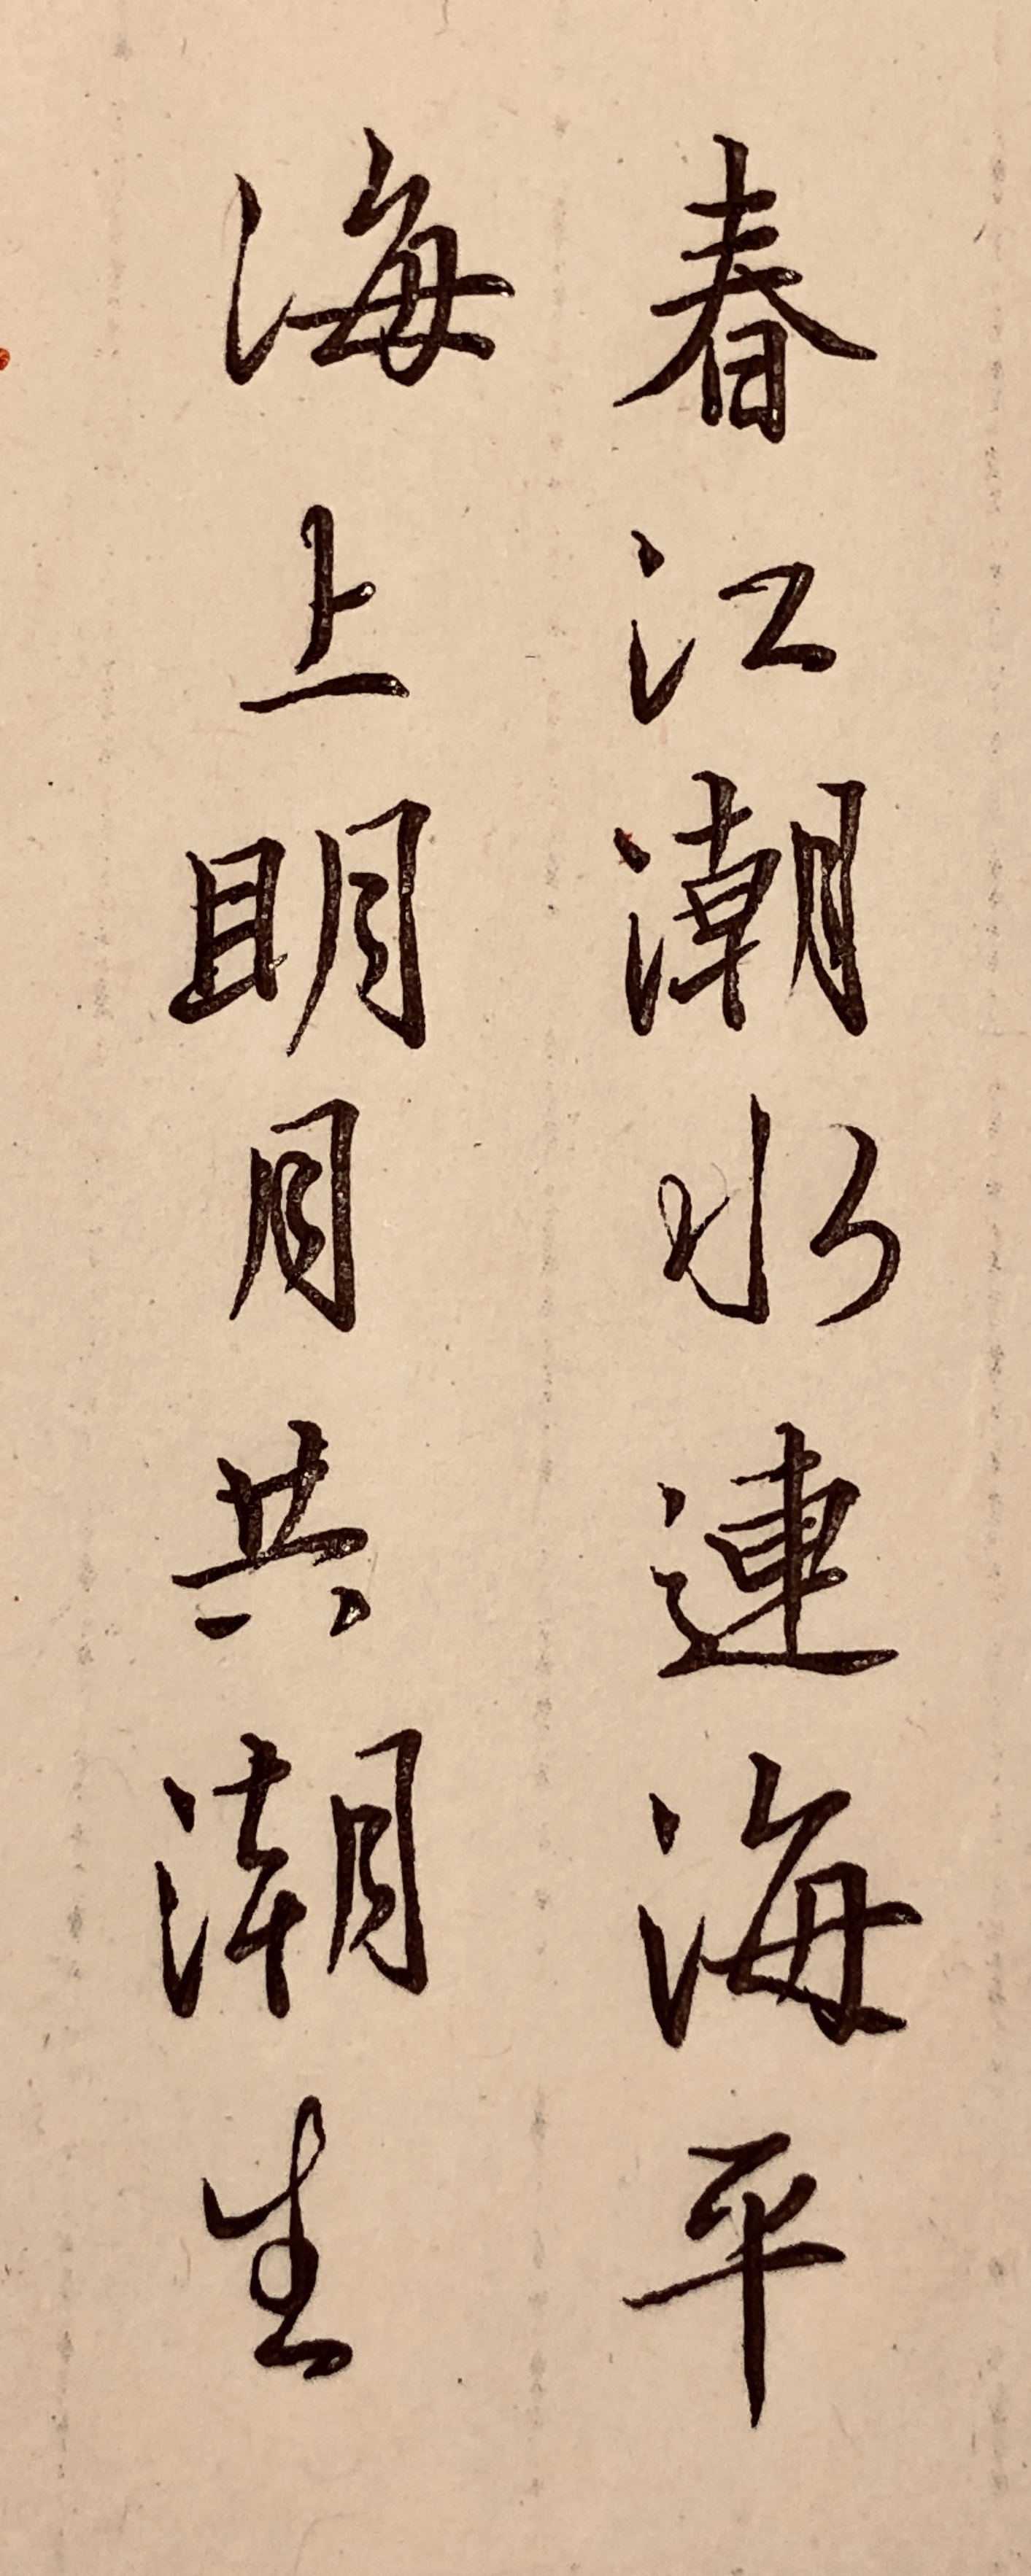 春江潮水連海平
海上明月共潮生